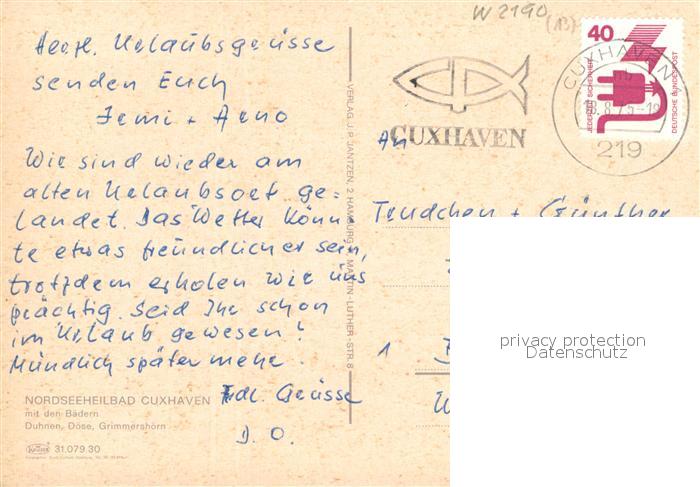 W 2190 (13)
Herzl. Urlaubsgrüsse
senden Euch
Irmi + Arno
Wir sind wieder am
alten Urlaubsort ge-
landet. Das Wetter könn-
te etwas freundlicher sein,
trotzdem erholen wir uns
prächtig. Seid Ihr schon
im Urlaub gewesen?
Mündlich später mehr.
Frdl. Grüsse
D. O.
NORDSEEHEILBAD CUXHAVEN
mit den Bädern
Duhnen, Döse, Grimmershörn
Krüger 31.079.30
VERLAG J.P. JANTZEN, 2 HAMBURG MARTIN-LUTHER-STR. 8
CUXHAVEN
CUXHAVEN
219
40
JEDERZEIT SICHERHEIT
DEUTSCHE BUNDESPOST
An
Trudchen + Günther
1
privacy protection
Datenschutz